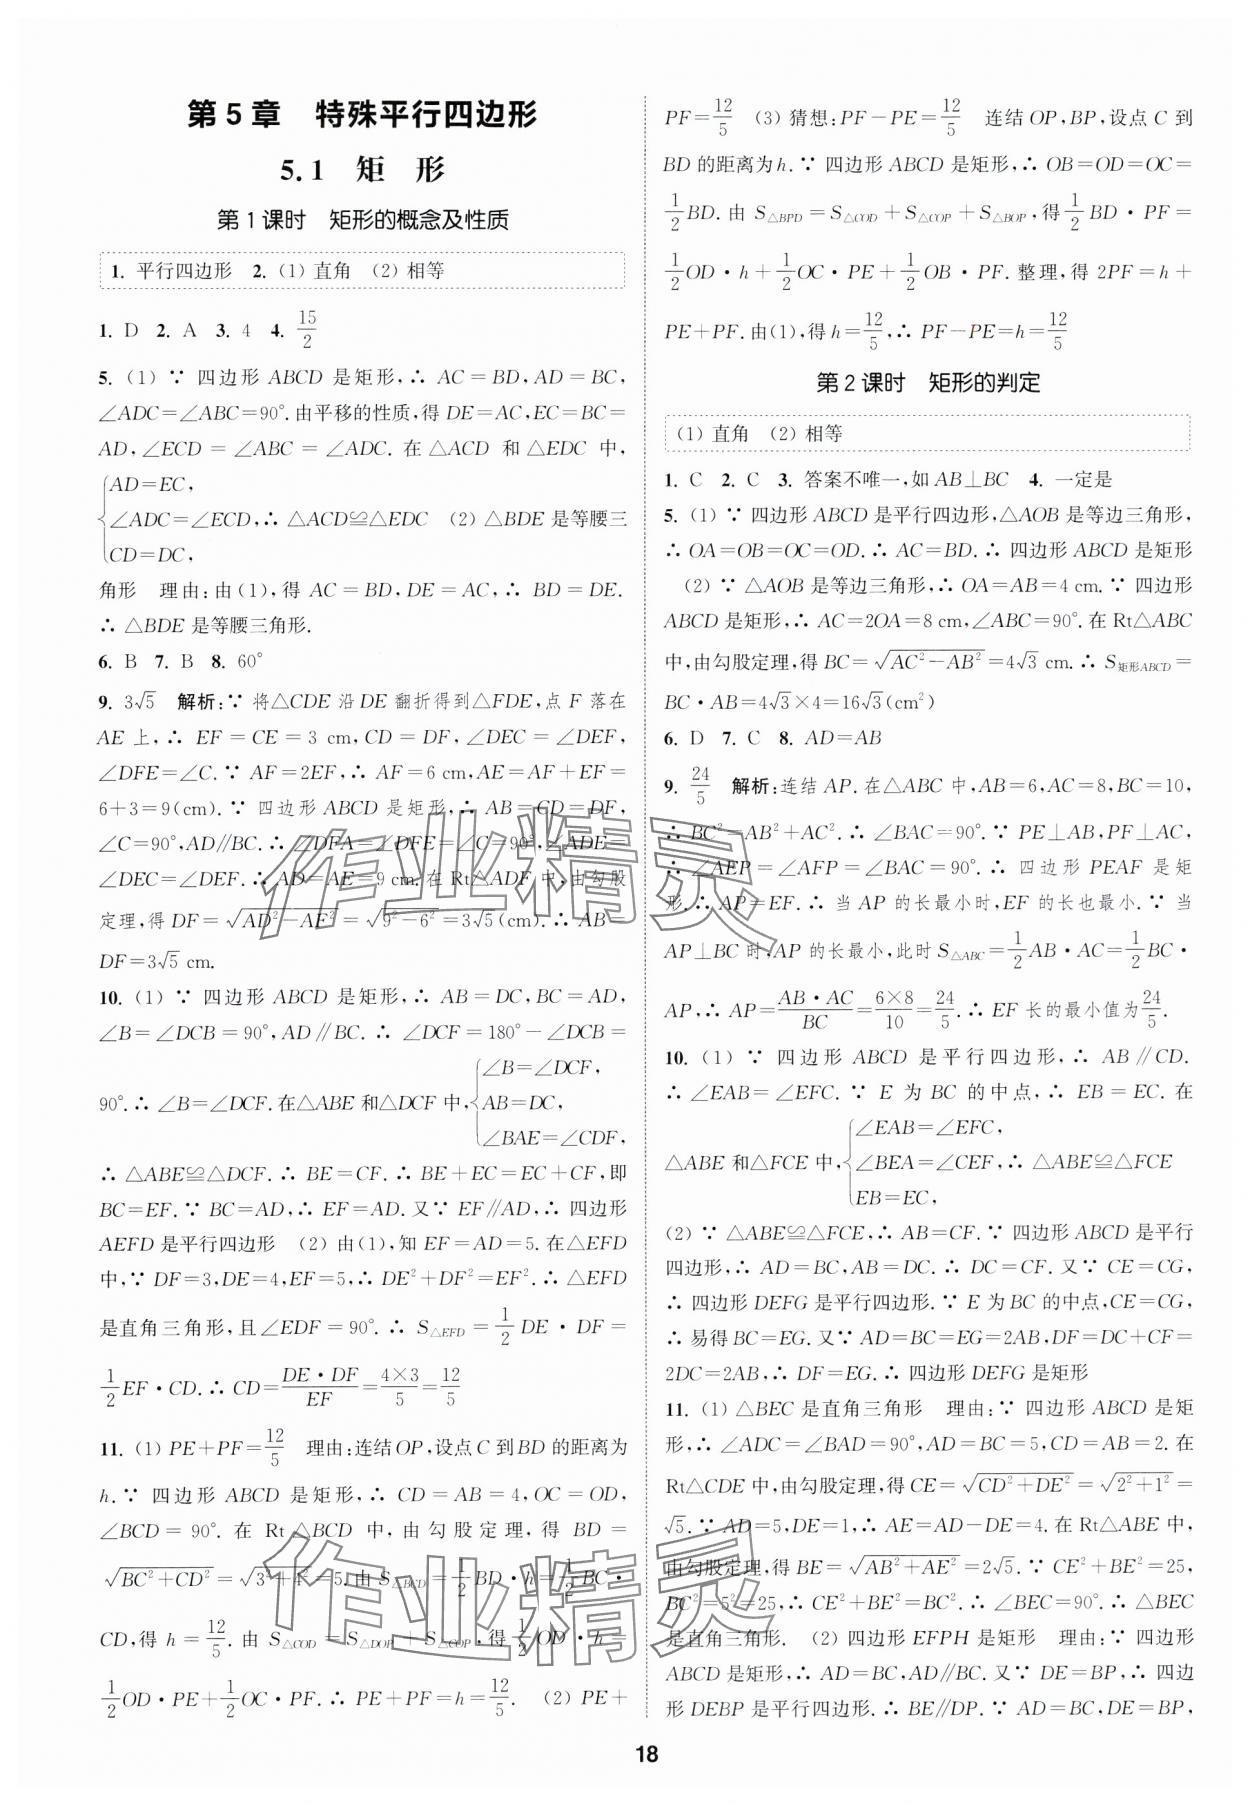 第5章　特殊平行四边形
5.1　矩　形
第1课时　矩形的概念及性质
1. 平行四边形　2. (1) 直角　(2) 相等
1. D　2. A　3. 4　4. 15/2
5. (1) ∵ 四边形 ABCD 是矩形,∴ AC=BD,AD=BC,
∠ADC=∠ABC=90°.由平移的性质,得 DE=AC,EC=BC=
AD,∠ECD=∠ABC=∠ADC.在△ACD 和△EDC 中,
{AD=EC,
∠ADC=∠ECD,∴ △ACD≌△EDC　(2) △BDE 是等腰三
CD=DC,
角形　理由:由(1),得 AC=BD,DE=AC,∴ BD=DE.
∴ △BDE 是等腰三角形.
6. B　7. B　8. 60°
9. 3√5　解析:∵ 将△CDE 沿 DE 翻折得到△FDE,点 F 落在
AE 上,∴ EF=CE=3 cm,CD=DF,∠DEC=∠DEF,
∠DFE=∠C.∵ AF=2EF,∴ AF=6 cm,AE=AF+EF=
6+3=9(cm).∵ 四边形 ABCD 是矩形,∴ AB=CD=DF,
∠C=90°,AD∥BC.∴ ∠DFA=∠DFE=∠C=90°,∠ADE=
∠DEC=∠DEF.∴ AD=AE=9 cm.在 Rt△ADF 中,由勾股
定理,得 DF=√(AD²-AF²)=√(9²-6²)=3√5(cm).∴ AB=
DF=3√5 cm.
10. (1) ∵ 四边形 ABCD 是矩形,∴ AB=DC,BC=AD,
∠B=∠DCB=90°,AD∥BC.∴ ∠DCF=180°-∠DCB=
90°.∴ ∠B=∠DCF.在△ABE 和△DCF 中,{∠B=∠DCF,
AB=DC,
∠BAE=∠CDF,
∴ △ABE≌△DCF.∴ BE=CF.∴ BE+EC=EC+CF,即
BC=EF.∵ BC=AD,∴ EF=AD.又∵ EF∥AD,∴ 四边形
AEFD 是平行四边形　(2) 由(1),知 EF=AD=5.在△EFD
中,∵ DF=3,DE=4,EF=5,∴ DE²+DF²=EF².∴ △EFD
是直角三角形,且∠EDF=90°.∴ S△EFD=1/2 DE·DF=
1/2 EF·CD.∴ CD=DE·DF/EF=4×3/5=12/5
11. (1) PE+PF=12/5　理由:连结OP,设点 C 到 BD 的距离为
h.∵ 四边形 ABCD 是矩形,∴ CD=AB=4,OC=OD,
∠BCD=90°.在 Rt△BCD 中,由勾股定理,得 BD=
√(BC²+CD²)=√(3²+4²)=5.由 S△BCD=1/2 BD·h=1/2 BC·
CD,得 h=12/5.由 S△COD=S△DOP+S△COP,得 1/2 OD·h=
1/2 OD·PE+1/2 OC·PF.∴ PE+PF=h=12/5.　(2) PE+
PF=12/5　(3) 猜想:PF-PE=12/5　连结 OP,BP,设点 C 到
BD 的距离为 h.∵ 四边形 ABCD 是矩形,∴ OB=OD=OC=
1/2 BD.由 S△BPD=S△COD+S△COP+S△BOP,得 1/2 BD·PF=
1/2 OD·h+1/2 OC·PE+1/2 OB·PF.整理,得 2PF=h+
PE+PF.由(1),得 h=12/5,∴ PF-PE=h=12/5
第2课时　矩形的判定
(1) 直角　(2) 相等
1. C　2. C　3. 答案不唯一,如 AB⊥BC　4. 一定是
5. (1) ∵ 四边形 ABCD 是平行四边形,△AOB 是等边三角形,
∴ OA=OB=OC=OD.∴ AC=BD.∴ 四边形 ABCD 是矩形
(2) ∵ △AOB 是等边三角形,∴ OA=AB=4 cm.∵ 四边形
ABCD 是矩形,∴ AC=2OA=8 cm,∠ABC=90°.在 Rt△ABC
中,由勾股定理,得 BC=√(AC²-AB²)=4√3 cm.∴ S矩形ABCD=
BC·AB=4√3×4=16√3(cm²)
6. D　7. C　8. AD=AB
9. 24/5　解析:连结 AP.在△ABC 中,AB=6,AC=8,BC=10,
∴ BC²=AB²+AC².∴ ∠BAC=90°.∵ PE⊥AB,PF⊥AC,
∴ ∠AEP=∠AFP=∠BAC=90°.∴ 四边形 PEAF 是矩
形.∴ AP=EF.∴ 当 AP 的长最小时,EF 的长也最小.∵ 当
AP⊥BC 时,AP 的长最小,此时 S△ABC=1/2 AB·AC=1/2 BC·
AP,∴ AP=AB·AC/BC=6×8/10=24/5.∴ EF 长的最小值为 24/5.
10. (1) ∵ 四边形 ABCD 是平行四边形,∴ AB∥CD.
∴ ∠EAB=∠EFC.∵ E 为 BC 的中点,∴ EB=EC.在
△ABE 和△FCE 中,{∠EAB=∠EFC,
∠BEA=∠CEF,∴ △ABE≌△FCE
EB=EC,
(2) ∵ △ABE≌△FCE,∴ AB=CF.∵ 四边形 ABCD 是平行
四边形,∴ AD=BC,AB=DC.∴ DC=CF.又∵ CE=CG,
∴ 四边形 DEFG 是平行四边形.∵ E 为 BC 的中点,CE=CG,
∴ 易得 BC=EG.又∵ AD=BC=EG=2AB,DF=DC+CF=
2DC=2AB,∴ DF=EG.∴ 四边形 DEFG 是矩形
11. (1) △BEC 是直角三角形　理由:∵ 四边形 ABCD 是矩
形,∴ ∠ADC=∠BAD=90°,AD=BC=5,CD=AB=2.在
Rt△CDE 中,由勾股定理,得 CE=√(CD²+DE²)=√(2²+1²)=
√5.∵ AD=5,DE=1,∴ AE=AD-DE=4.在 Rt△ABE 中,
由勾股定理,得 BE=√(AB²+AE²)=2√5.∵ CE²+BE²=25,
BC²=5²=25,∴ CE²+BE²=BC².∴ ∠BEC=90°.∴ △BEC
是直角三角形.　(2) 四边形 EFPH 是矩形　理由:∵ 四边形
ABCD 是矩形,∴ AD=BC,AD∥BC.又∵ DE=BP,∴ 四边
形 DEBP 是平行四边形.∴ BE∥DP.∵ AD=BC,DE=BP,
18
作业精灵
作业精灵